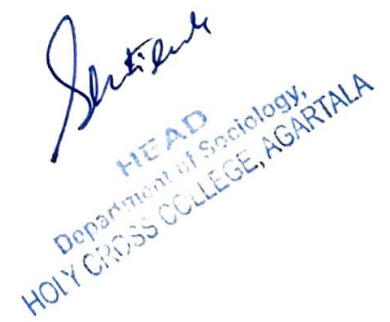 HEAD
Department of Sociology,
HOLY CROSS COLLEGE, AGARTALA